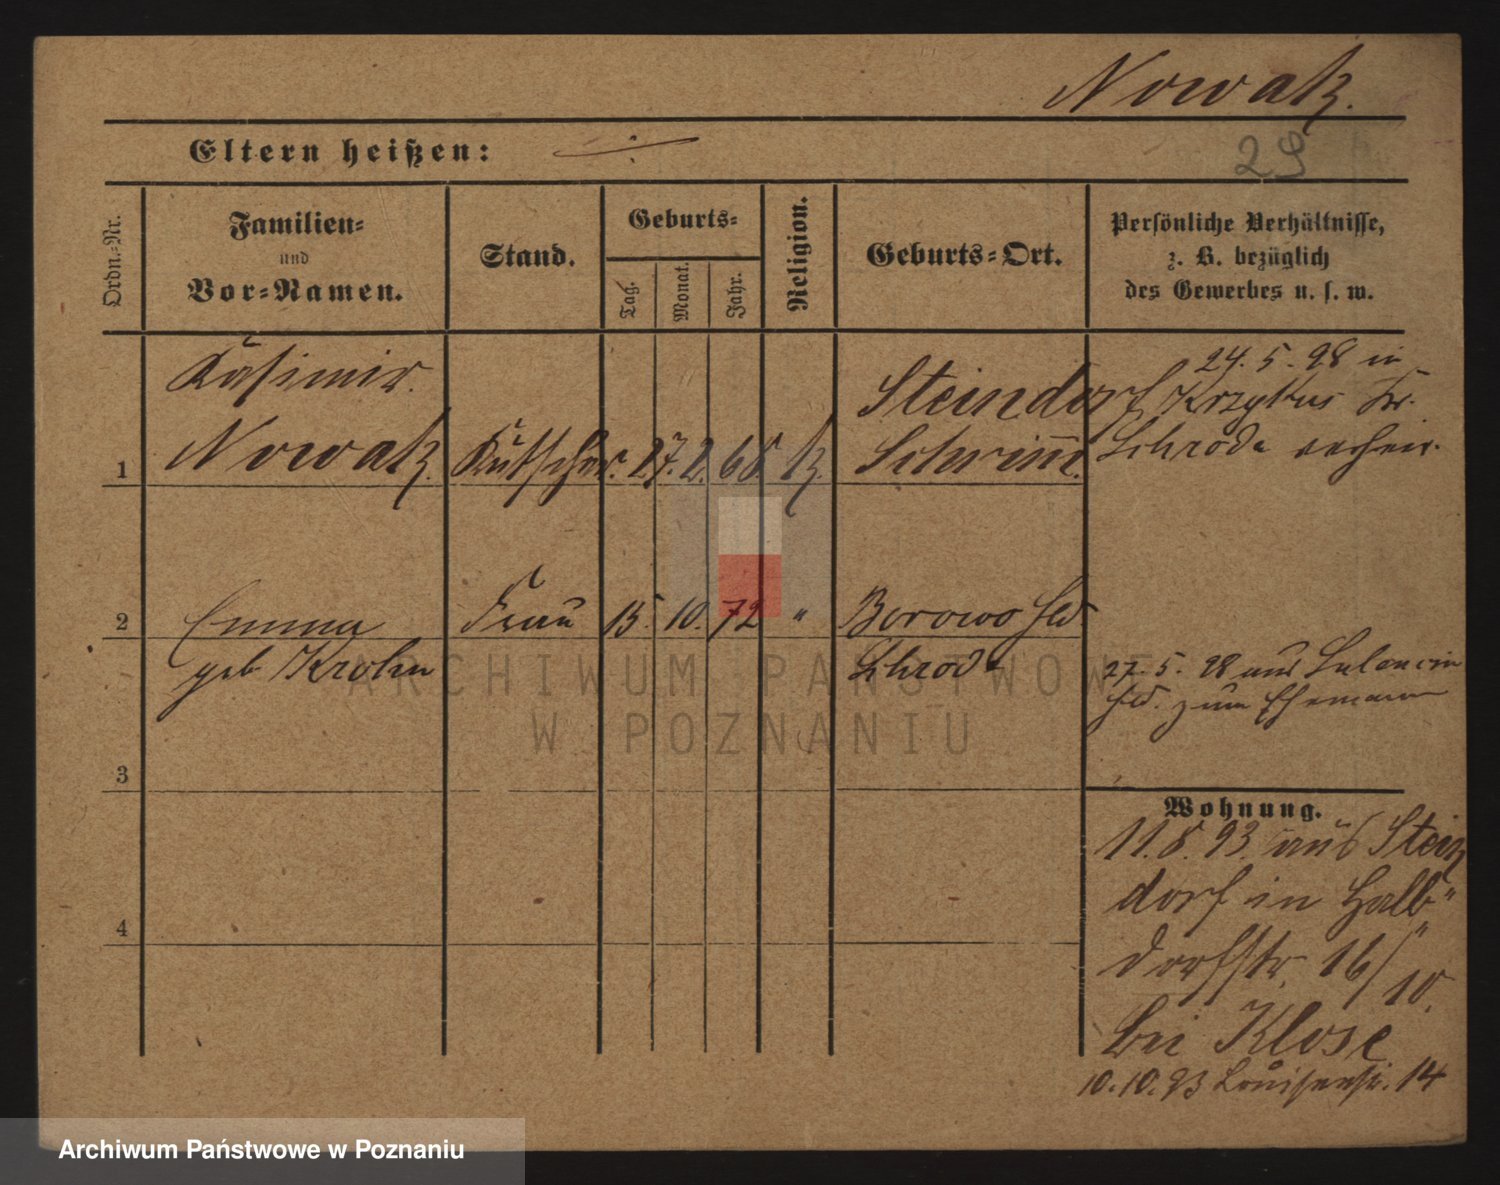 Nowak.
29
Eltern heißen:
Ordn.-Nr.
Familien-
und
Vor-Namen.
Stand.
Geburts-
Tag.
Monat.
Jahr.
Religion.
Geburts-Ort.
Persönliche Verhältnisse,
z. B. bezüglich
des Gewerbes u. s. w.
1
Kasimir
Nowak
Kutscher.
27.
2.
68.
k.
Steindorf
Schrimm.
24. 5. 98 in
Krzykus Kr.
Schroda verheir.
2
Emma
geb Krohn
Frau
15.
10.
72
"
Borowo
Schroda
27. 5. 98 aus
zum Ehemann
3
4
Wohnung.
11. 8. 93. aus Stein
dorf in Halb"
dorfstr. 16/10.
bei Klose
10. 10. 93 Louisenstr. 14
ARCHIWUM PAŃSTWOWE
W POZNANIU
Archiwum Państwowe w Poznaniu